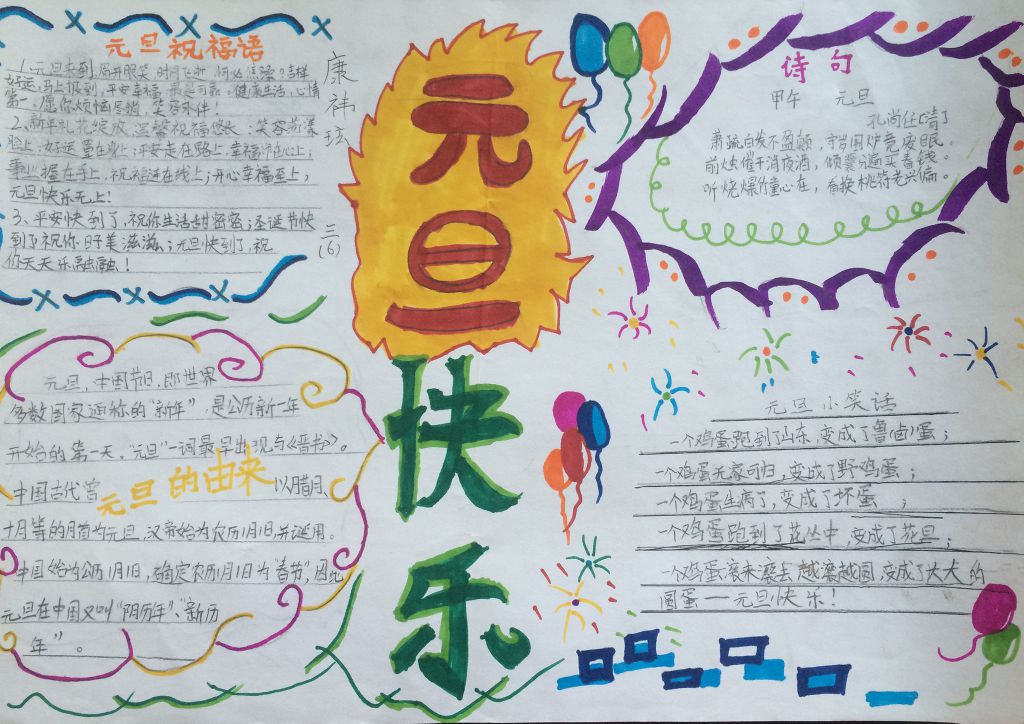 元旦祝福语
1、元旦来到,眉开眼笑,时间飞逝,何必焦躁?吉祥
好运,马上报到,平安幸福,最是可靠。健康生活,心情
第一。愿你烦恼尽消,笑容永伴!
2、新年礼花绽放,温馨祝福悠长:笑容荡漾
脸上;好运置在身上;平安走在路上,幸福流在心上;
事业握在手上,祝福送在线上;开心幸福至上,
元旦快乐无上!
3、平安快到了,祝你生活甜密密;圣诞节快
到了祝你日子美滋滋;元旦快到了,祝
你天天乐融融!
康祎玹
三(6)
元旦
快乐
诗句
甲午 元旦
孔尚任[清]
萧疏白发不盈颠,守岁围炉竟废眠。
剪烛催干消夜酒,倾囊分遍买春钱。
听烧爆竹童心在,看换桃符老兴偏。
元旦,中国节日,即世界
多数国家通称的“新年”,是公历新一年
开始的第一天,“元旦”一词最早出现与《晋书》。
中国古代曾
元旦的由来
以月腊月、
十月等的月首为元旦,汉帝始为农历1月1日,并沿用。
中国始为公历1月1日,确定农历1月1日为“春节”,因此
元旦在中国又叫“阴历年”、“新历
年”。
元旦小笑话
一个鸡蛋跑到了山东,变成了鲁(卤)蛋;
一个鸡蛋无家可归,变成了野鸡蛋;
一个鸡蛋生病了,变成了坏蛋;
一个鸡蛋跑到了花丛中,变成了花旦;
一个鸡蛋滚来滚去,越滚越圆,变成了大大的
圆蛋——元旦快乐!